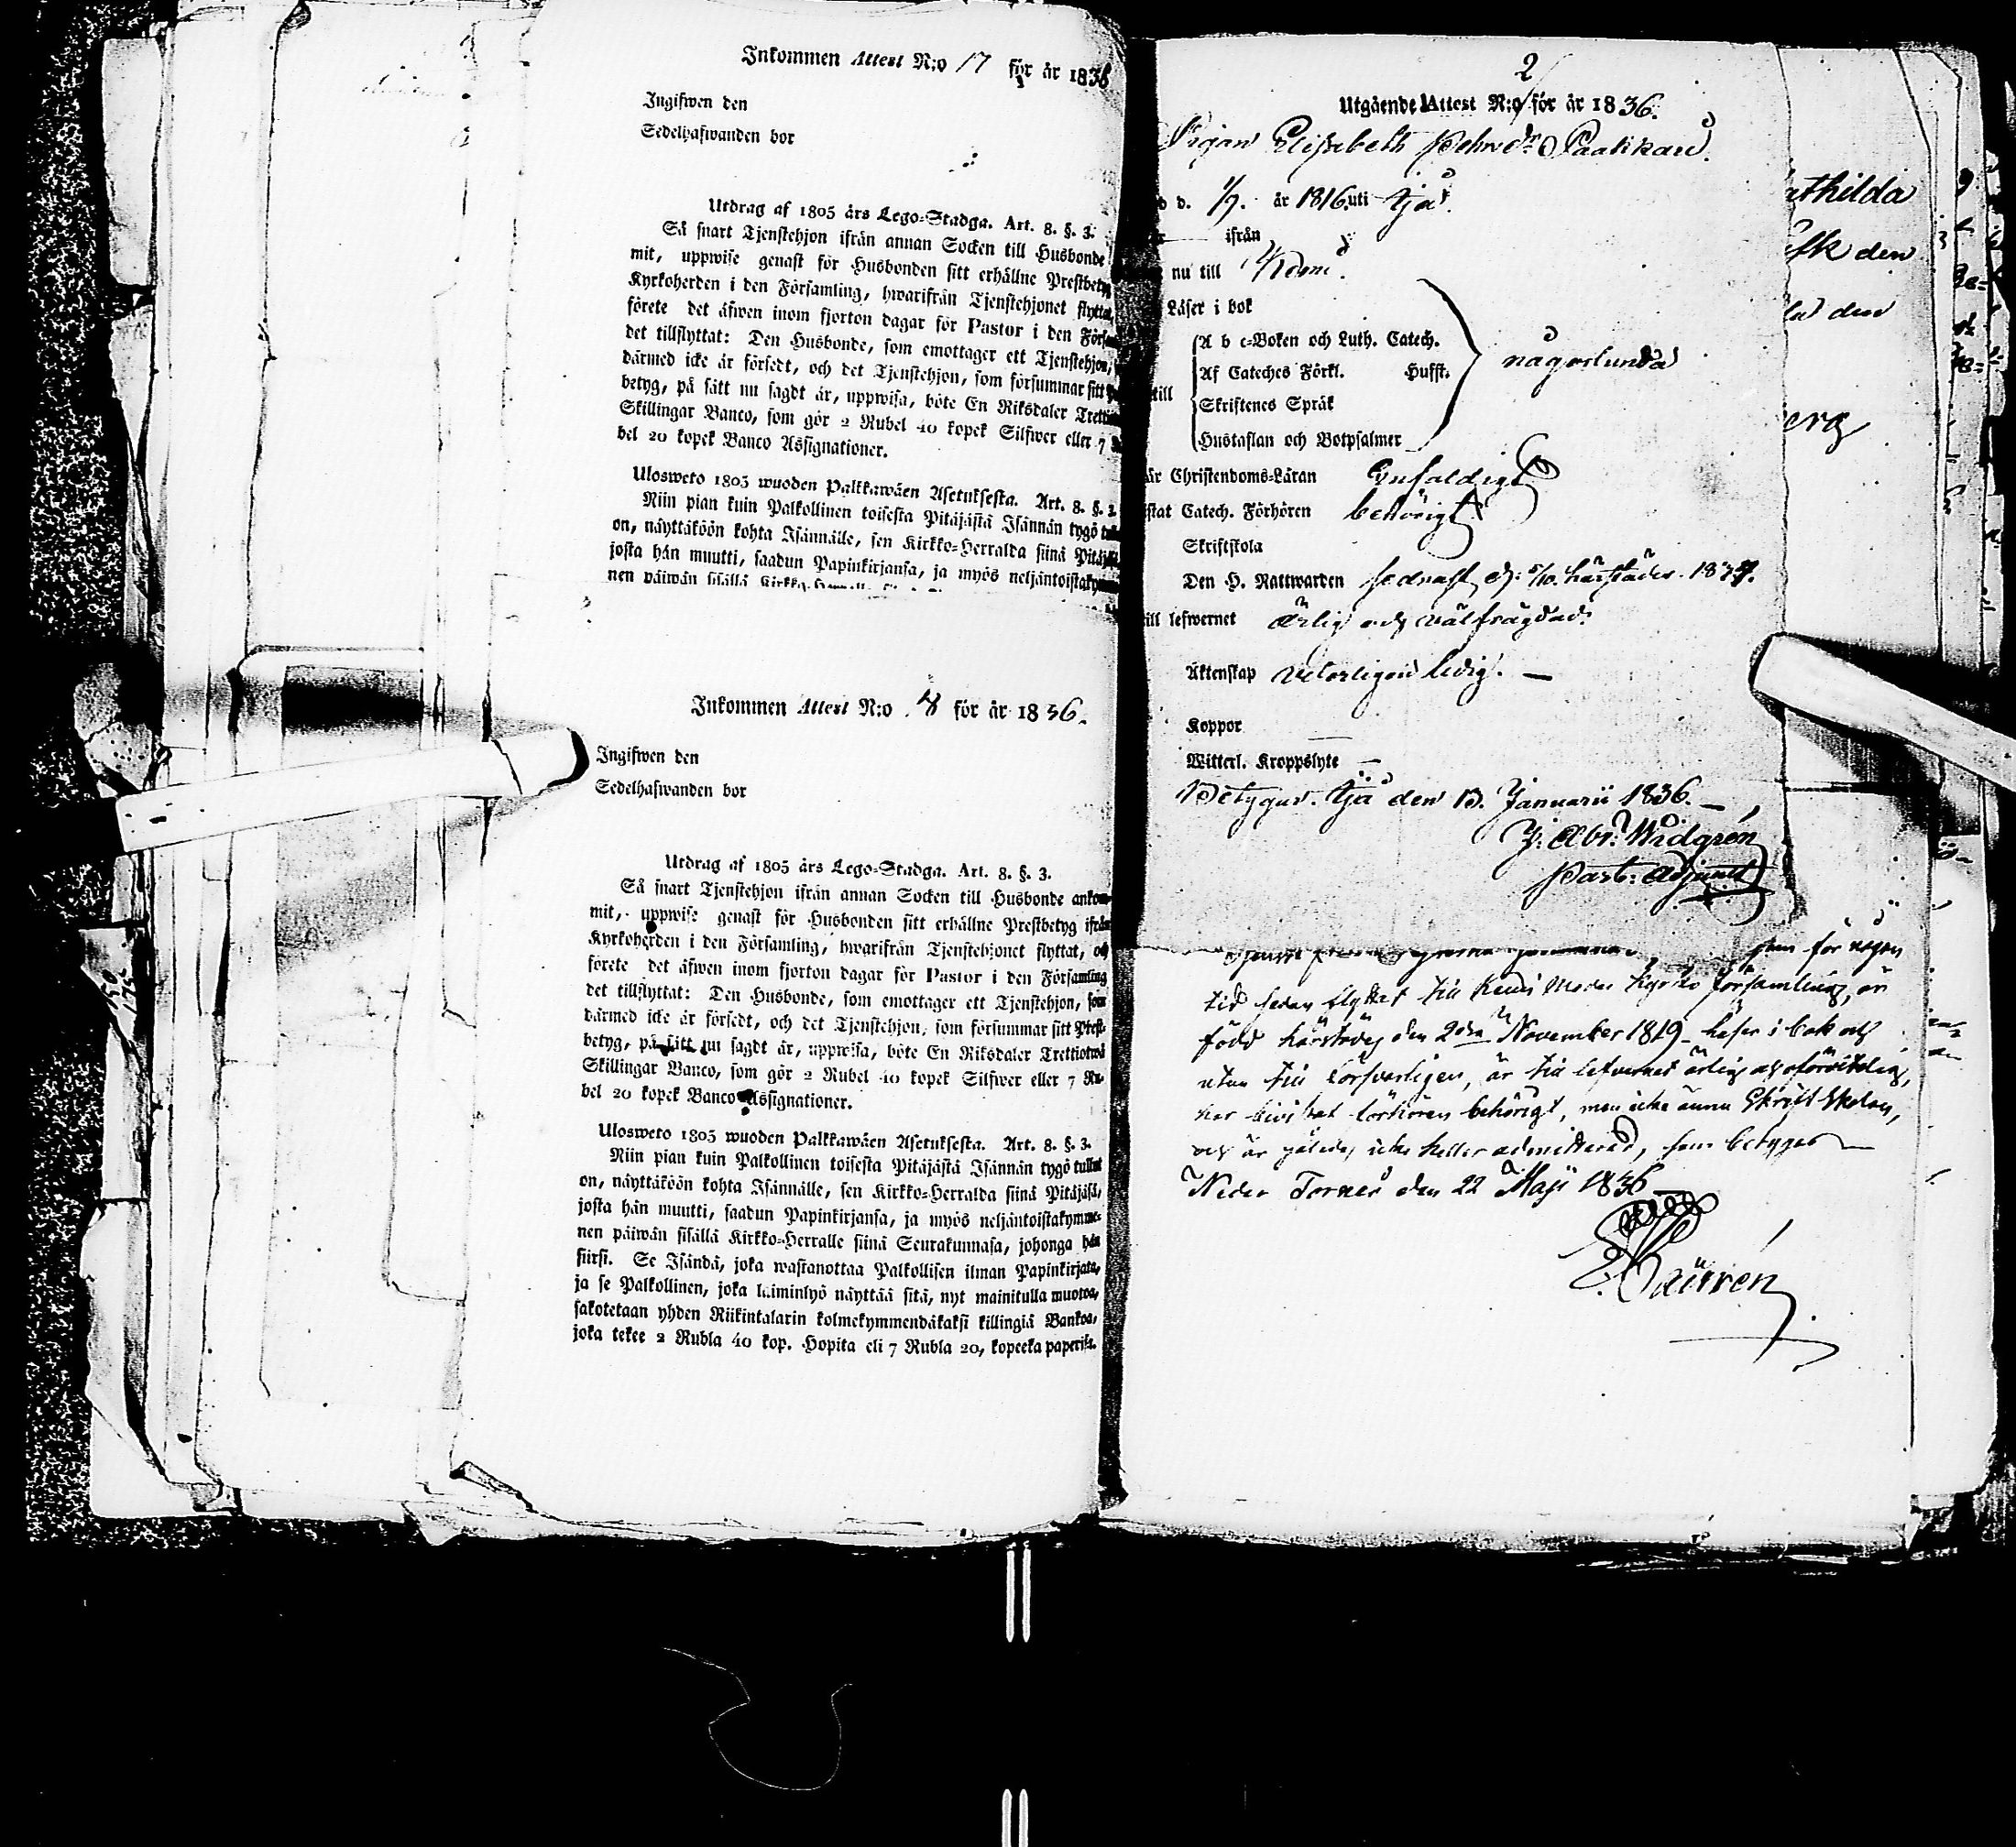 Inkommen Attest N:o 17 för är 1836
Ingifwen den
Sedelhafwanden bor
Utdrag af 1805 års Lego-Stadga. Art. 8. §. 3.
Så snart Tjenstehjon ifrån annan Socken till Husbonde
mit, uppwise genast för Husbonden sitt erhållne Prestbetyg
Kyrkoherden i den Församling, hwarifrån Tjenstehjonet flyttat,
förete det äfwen inom fjorton dagar för Pastor i den
det tillflyttat: Den Husbonde, som emottager ett Tjenstehjon,
därmed icke är försedt, och det Tjenstehjon, som försummar sitt
betyg, på sätt nu sagdt är, uppwisa, böte En Riksdaler
Skillingar Banco, som gör 2 Rubel 40 kopek Silfwer eller 7
bel 20 kopek Banco Assignationer.
Ulosweto 1805 wuoden Palkkawäen Asetuksesta. Art. 8. §. 3.
Niin pian kuin Palkollinen toisesta Pitäjästä Isännän tygö
on, näyttäköön kohta Isännälle, sen Kirkko-Herralda siinä
josta hän muutti, saadun Papinkirjansa, ja myös
nen päiwän sisällä
Inkommen Attest N:o 8 för är 1836.
Ingifwen den
Sedelhafwanden bor
Utdrag af 1805 års Lego-Stadga. Art. 8. §. 3.
Så snart Tjenstehjon ifrån annan Socken till Husbonde ankom-
mit, uppwise genast för Husbonden sitt erhållne Prestbetyg ifrån
Kyrkoherden i den Församling, hwarifrån Tjenstehjonet flyttat, och
förete det äfwen inom fjorton dagar för Pastor i den Församling
det tillflyttat: Den Husbonde, som emottager ett Tjenstehjon, som
därmed icke är försedt, och det Tjenstehjon, som försummar sitt Prest-
betyg, på sätt nu sagdt är, uppwisa, böte En Riksdaler Trettiotwå
Skillingar Banco, som gör 2 Rubel 40 kopek Silfwer eller 7 Ru-
bel 20 kopek Banco Assignationer.
Ulosweto 1805 wuoden Palkkawäen Asetuksesta. Art. 8. §. 3.
Niin pian kuin Palkollinen toisesta Pitäjästä Isännän tygö tullut
on, näyttäköön kohta Isännälle, sen Kirkko-Herralda siinä Pitäjäsä,
josta hän muutti, saadun Papinkirjansa, ja myös neljäntoistakymme-
nen päiwän sisällä Kirkko-Herralle siinä Seurakunnasa, johonga hän
siirsi. Se Isändä, joka wastanottaa Palkollisen ilman Papinkirjata,
ja se Palkollinen, joka laiminlyö näyttää sitä, nyt mainitulla muotoa,
sakotetaan yhden Riikintalarin kolmekymmendäkaksi killingiä Bankoa,
joka tekee 2 Rubla 40 kop. Hopita eli 7 Rubla 20, kopeeka paperisa.
2
Utgående Attest N:o för är 1836.
Pigan Elisabeth Paakkari
d. 1/7. är 1816 uti Ijå
ifrån
nu till Kemi
Läser i bok
A b c-Boken och Luth. Catech.
Af Cateches Förkl. Husft.
till någorlunda
Skriftenes Språk
Hustaflan och Botpsalmer
Christendoms-Läran Enfaldigt
Catech. Förhören behörigt
Skriftskola
Den H. Nattwarden sednast d. härstädes.
till lefwernet ärlig och välfrägdad.
Äktenskap veterligen ledig. —
Koppor —
Witterl. Kroppslyte —
Betygar. Ijå den 13. Januarii 1836. —
J. Abr. Widgren
Past. Adjunct
som för någon
tid sedan flyttat till Kemi Moder Kyrko församling, är
född härstädes den 2dra November 1819 läser i bok och
utan till försvarligen, är till lefvernet ärlig och oförvitelig,
har bivistat förhören behörigt, men icke ännu Skriftskolan,
och är således icke heller admitterad, som betygas
Neder Torneå den 22 Maji 1836